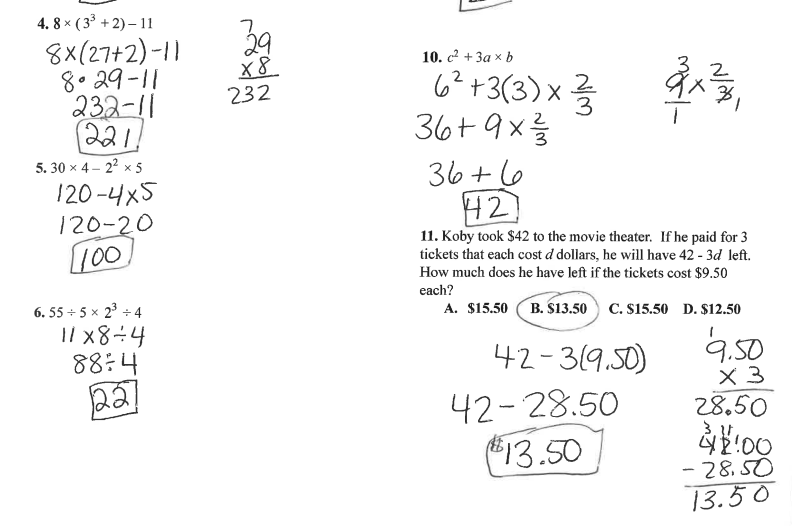 4. 8 × (3³ + 2) – 11
8×(27+2)-11
8·29-11
232-11
221
7
29
×8
232
5. 30 × 4 – 2² × 5
120-4×5
120-20
100
6. 55 ÷ 5 × 2³ ÷ 4
11×8÷4
88÷4
22
10. c² + 3a × b
6²+3(3)×2/3
36+9×2/3
36+6
42
3
9/1×2/3 1
11. Koby took $42 to the movie theater. If he paid for 3
tickets that each cost d dollars, he will have 42 - 3d left.
How much does he have left if the tickets cost $9.50
each?
A. $15.50 B. $13.50 C. $15.50 D. $12.50
42-3(9.50)
42-28.50
$13.50
1
9.50
×3
28.50
3 11
42.00
-28.50
13.50